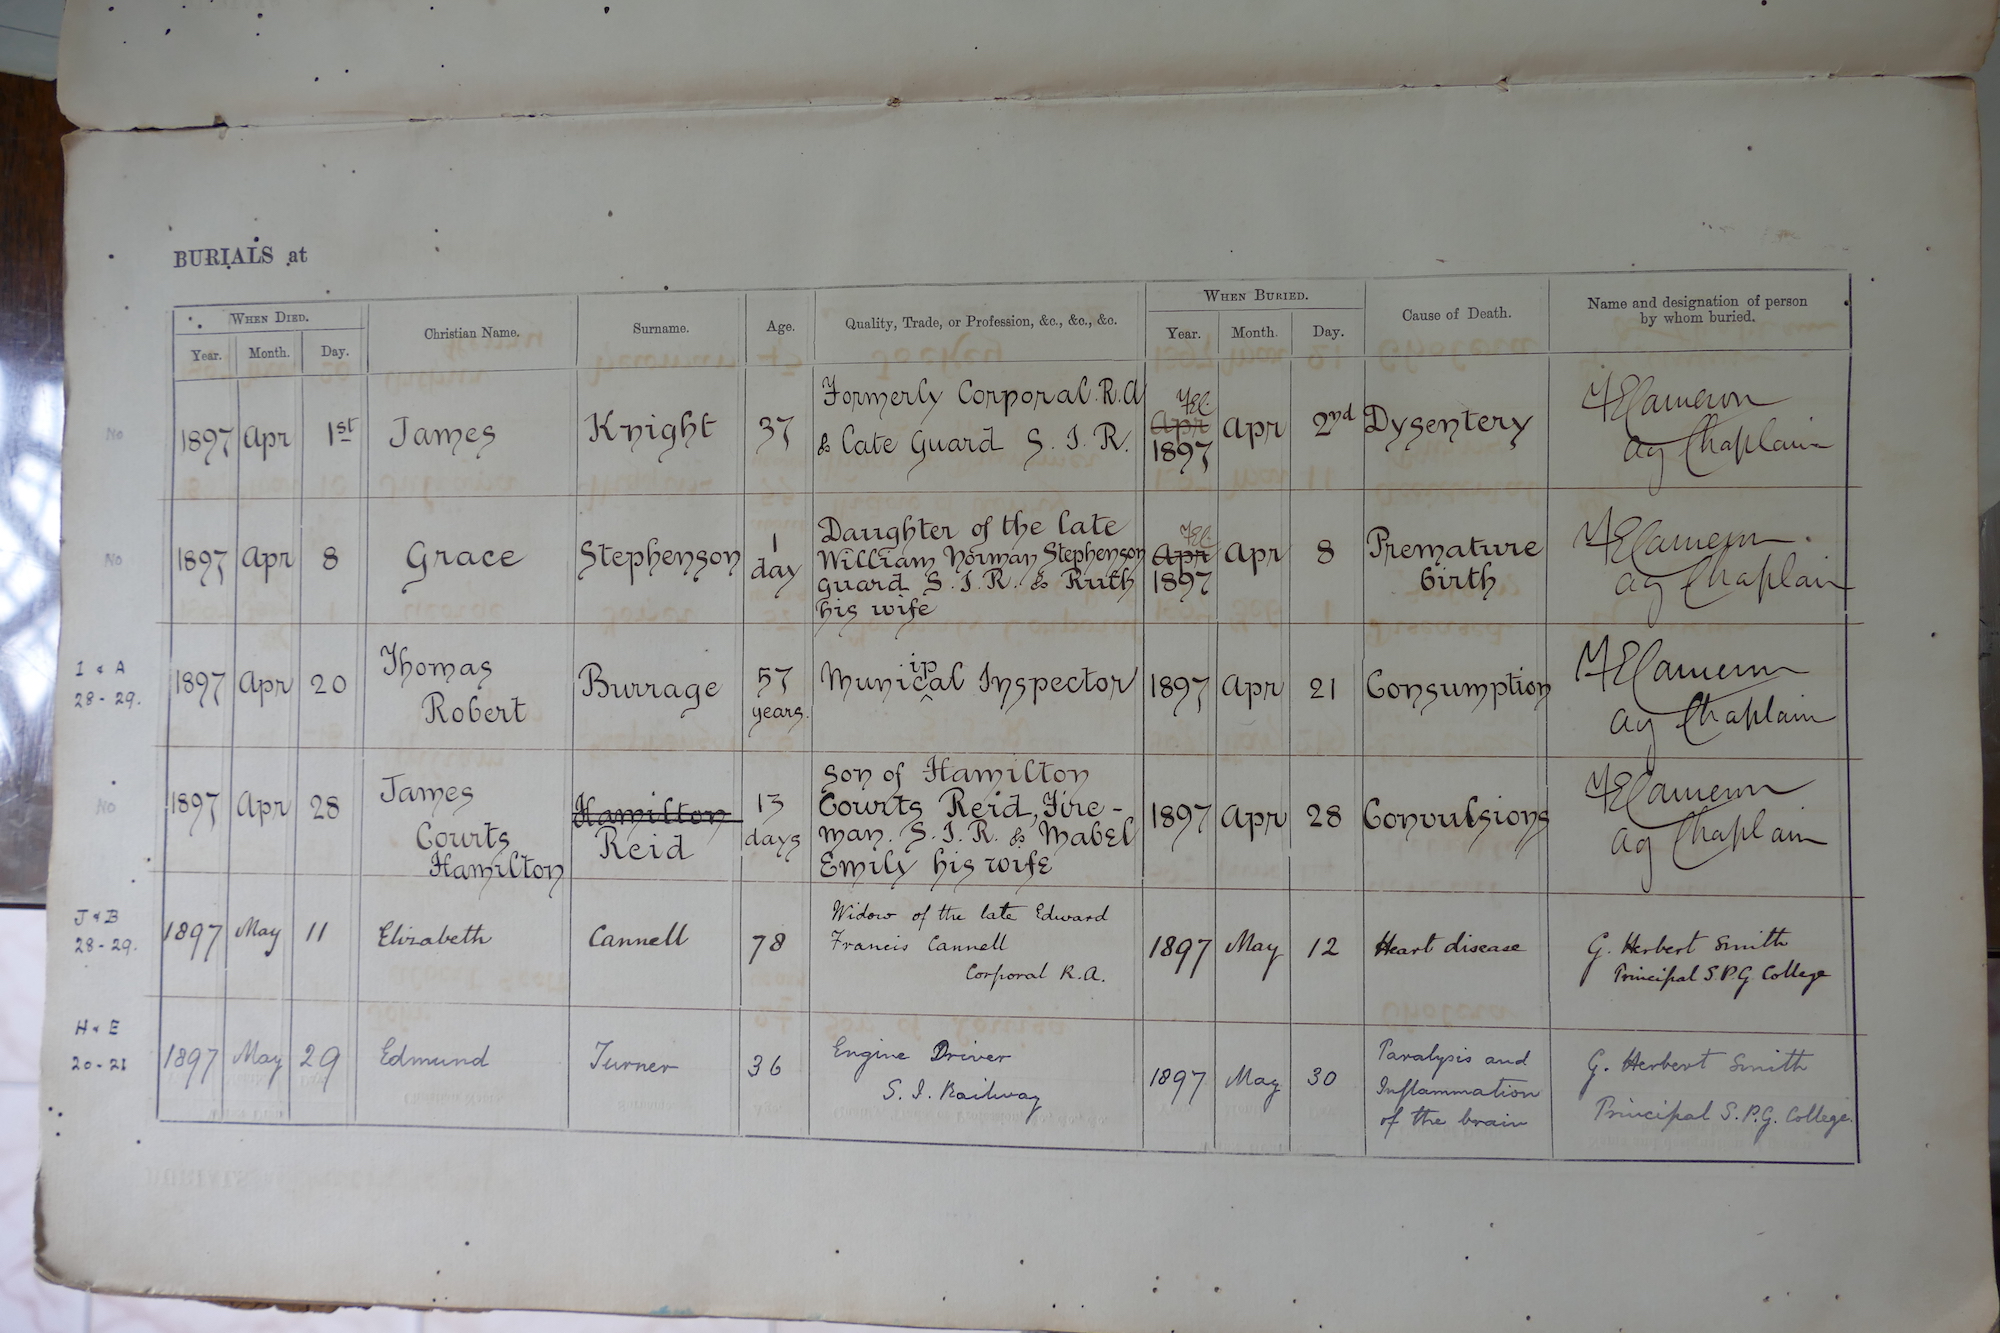 BURIALS at
WHEN DIED.
Christian Name.
Surname.
Age.
Quality, Trade, or Profession, &c., &c., &c.
WHEN BURIED.
Cause of Death.
Name and designation of person
by whom buried.
Year.
Month.
Day.
Year.
Month.
Day.
No
1897
Apr
1st
James
Knight
37
Formerly Corporal R.A
& late Guard S. I. R.
Apr
1897
Apr
2nd
Dysentery
Cameron
Ag Chaplain
No
1897
Apr
8
Grace
Stephenson
1
day
Daughter of the late
William Norman Stephenson
Guard S. I. R. & Ruth
his wife
Apr
1897
Apr
8
Premature
birth
Cameron
Ag Chaplain
I & A
28-29.
1897
Apr
20
Thomas
Robert
Burrage
57
years.
Municipal Inspector
1897
Apr
21
Consumption
Cameron
Ag Chaplain
No
1897
Apr
28
James
Courts
Hamilton
Hamilton
Reid
13
days
Son of Hamilton
Courts Reid, Fire-
man. S. I. R. & Mabel
Emily his wife
1897
Apr
28
Convulsions
Cameron
Ag Chaplain
J & B
28-29.
1897
May
11
Elizabeth
Cannell
78
Widow of the late Edward
Francis Cannell
Corporal R.A.
1897
May
12
Heart disease
G. Herbert Smith
Principal S.P.G College
H & E
20-21
1897
May
29
Edmund
Turner
36
Engine Driver
S. I. Railway
1897
May
30
Paralysis and
Inflammation
of the brain
G. Herbert Smith
Principal S.P.G. College.